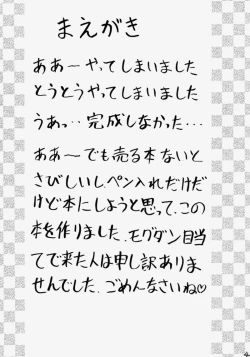 まえがき
ああ〜やってしまいました
とうとうやってしまいました
うあっ・・完成しなかった・・・
ああ〜でも売る本ないと
さびしいし、ペン入れだけだ
けど本にしようと思って、この
本を作りました、モグダン目当
てで来た人は申し訳ありま
せんでした、ごめんなさいね♡